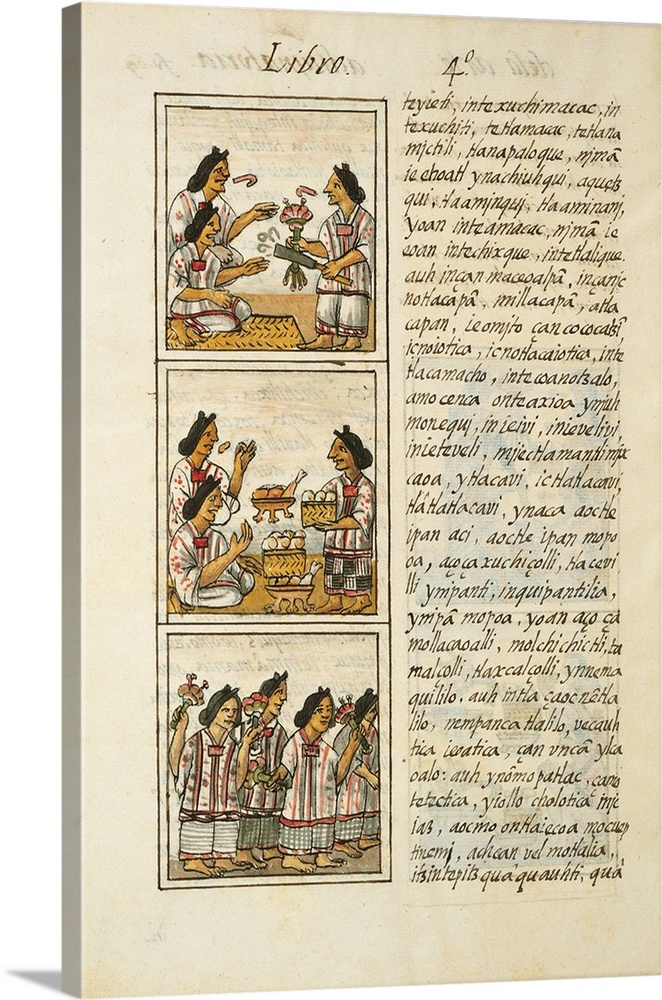 Libro. 4º
teyieti, intexuchimacac, in
texuchiti, tetlamacac, tetlana
mictili, tlanapaloque, njmã
ie ehoatl ynachiuhqui, aquetz
qui, tlaamjnqui, tlaaminanj,
yoan inteamacac, njmã ie
eoan intechixque, intetlalique.
auh inçan maceoalpã, incanjc
notlacapã, millacapã, atla
capan, ieomjto çan cococatzi
icnoiotica, icnotlacaiotica, inte
tlacamacho, intecoanotzalo,
amo cenca onteaxioa ynjuh
monequi, inieivi, inievelivi,
inieteveli, mjectlamantlimpo
caoa, ytlacavi, ictlatlacavi,
tlãtlatlacavi, ynaca aoctle
ipan aci, aoctle ipan mopo
oa, açoçaxuchiçolli, tlacevi
lli ympanti, inquipantilia,
ympã mopoa, yoan aço ça
mollacaoalli, molchichictli, ta
malcolli, tlaxcalçolli, ynnema
quililo. auh intla çaoc nẽtla
lilo, nempanca tlalilo, vecauh
tica ieoatica, çan vncã yca
oalo: auh ynõmopatlac, çano
tetectica, yiollo cholotica injc
iaz, aocmo ontlaiecoa mocuep
tinemj, achcan vel motlalia,
itzintepitz quaquauhti, qua